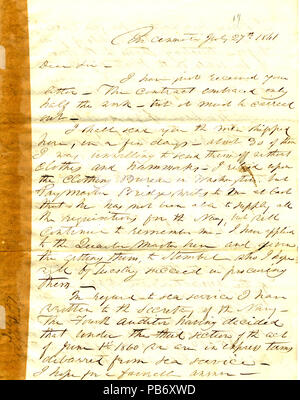 Cincinnati July 27th 1861
Dear Sir
I have just received your
letter – The contract embraced only
half the work – but it must be carried
out –
I shall send you the men shipped
here, in a few days – about 30 of them
I was unwilling to send them off without
Clothes and Hammocks – I relied upon
the Clothing Bureau at Washington but
Pay Master Bridge writes to me at last
that he has not been able to supply all
the requisitions for the Navy, but will
continue to remember me – I have applied
to the Quarter Master here and
the getting them, to
by Tuesday succeed in procuring
them –
In regard to sea service I have
written to the Secretary of the Navy –
The Fourth Auditor having decided
that under the third section of the act
of June 1st 1860 we are in express terms
debarred from sea service –
I hope for a favorable answer –
alamy
Image ID: PB6XWD
www.alamy.com